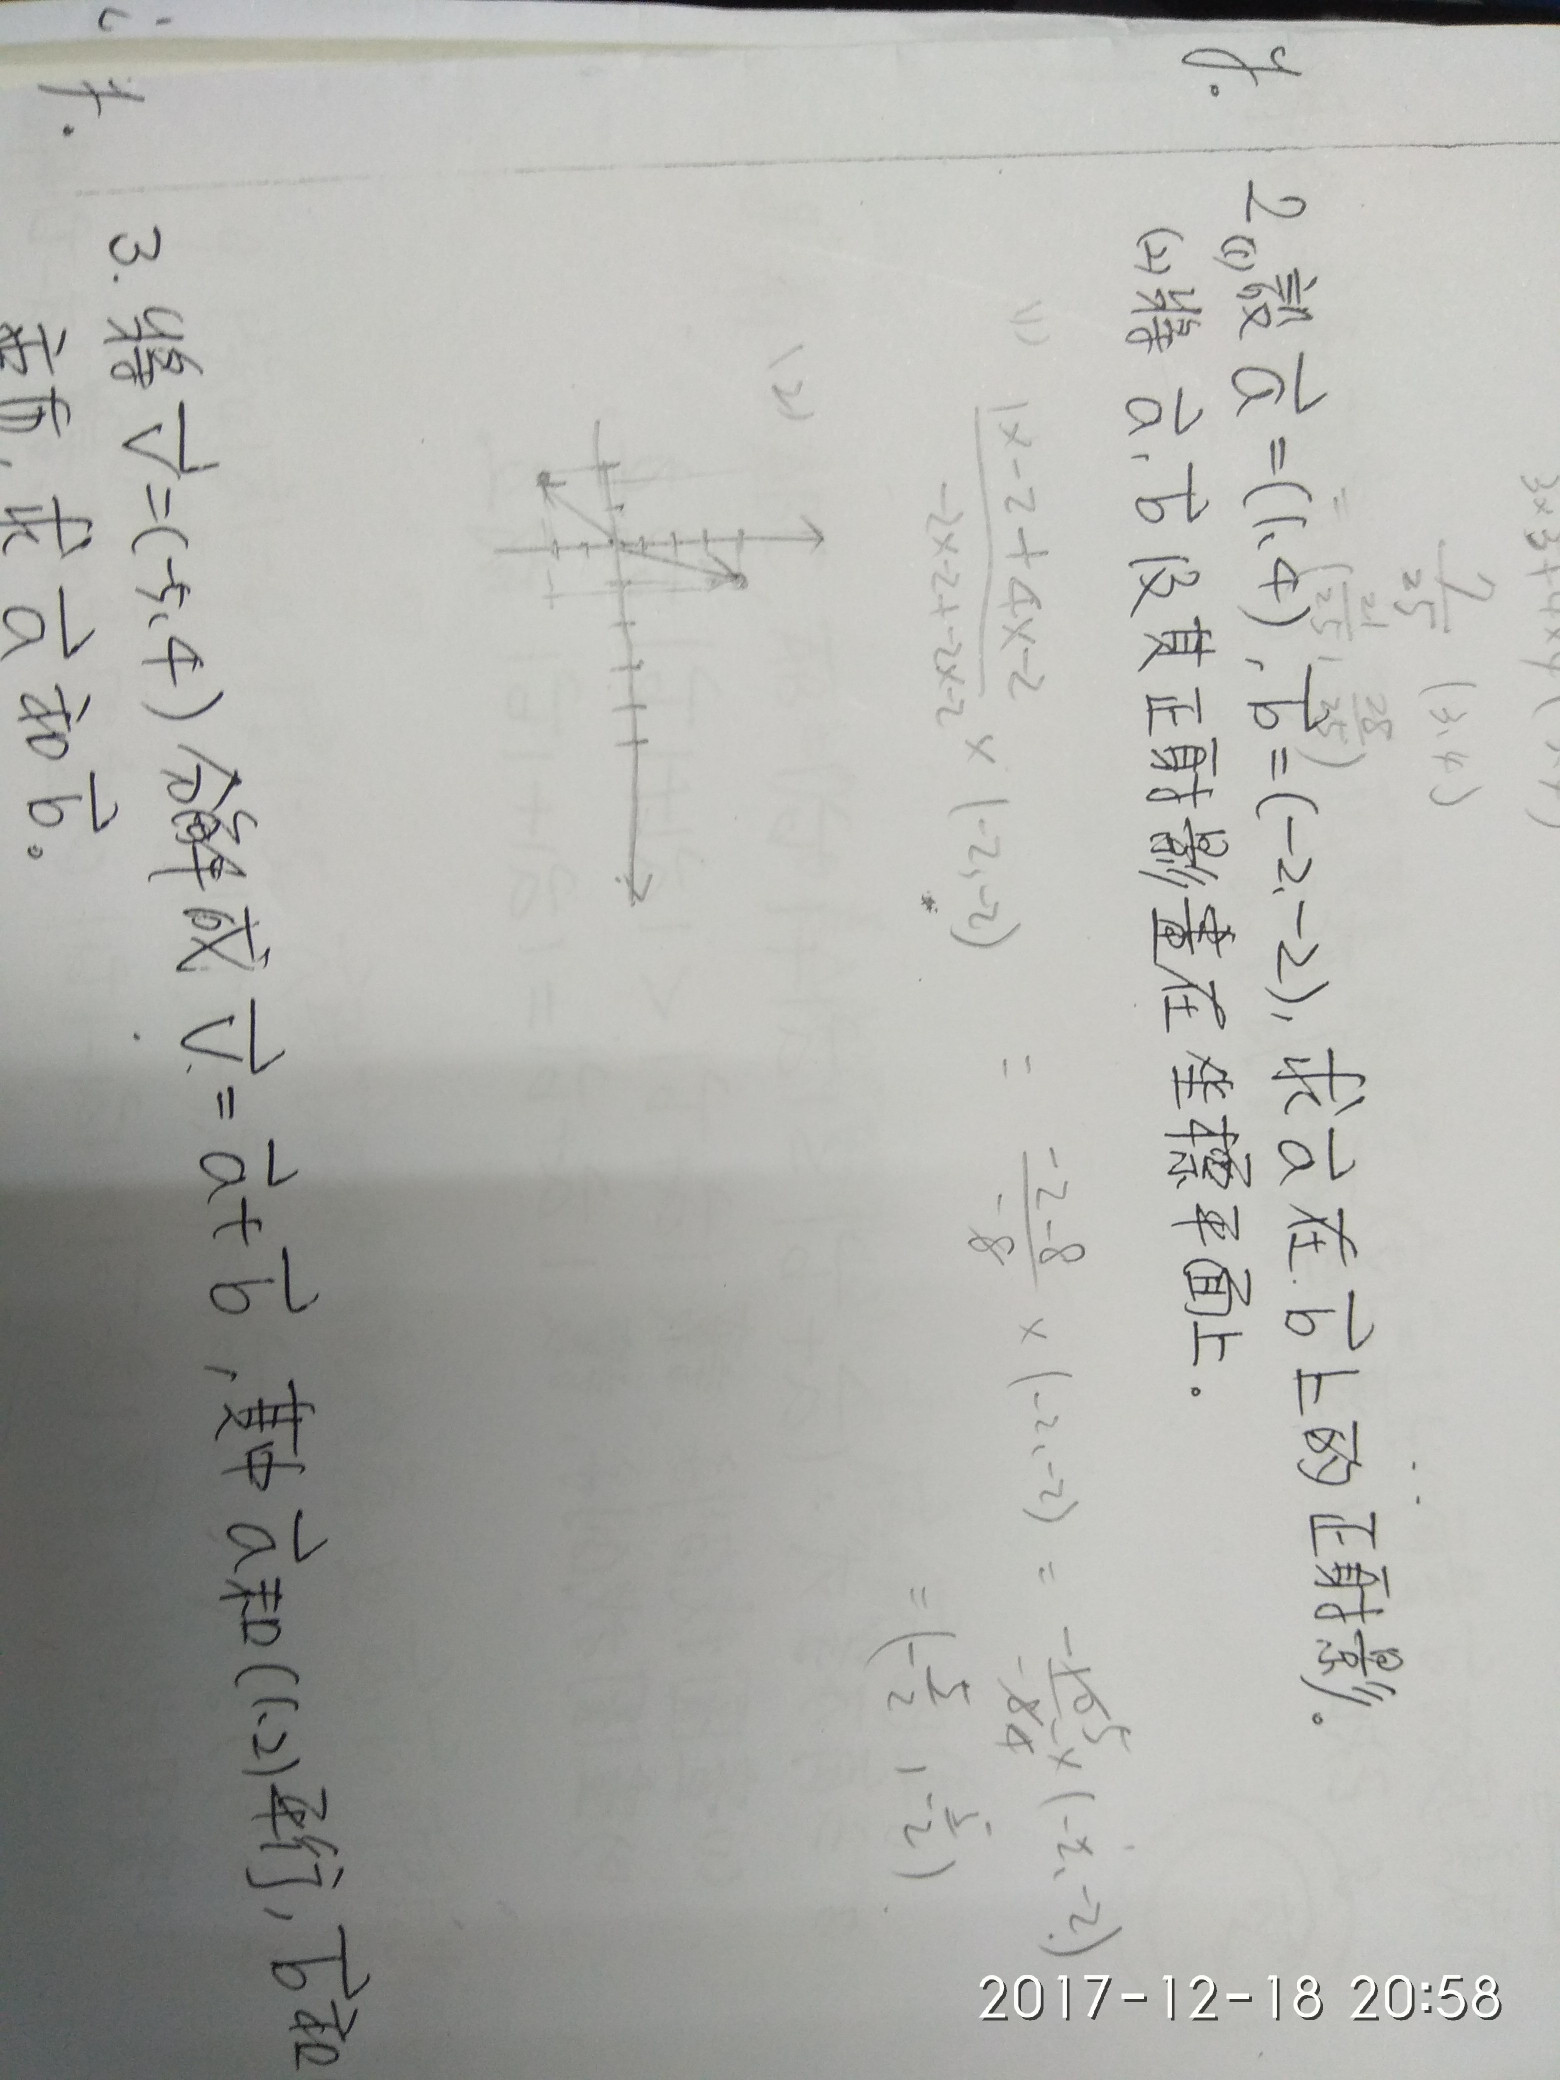 3×3+4×4
7/25 (3,4)
= (21/25, 28/25)
2.(1)設 a⃗ =(1,4), b⃗ =(-2,-2), 求 a⃗ 在 b⃗ 上的正射影。
(2)將 a⃗, b⃗ 及其正射影畫在坐標平面上。
(1) 1×-2+4×-2/-2×-2+-2×-2 × (-2,-2) = -2-8/8 × (-2,-2) = -10 5/8 4 × (-2,-2)
= (-5/2, -5/2)
(2)
3. 將 v⃗ =(-5,4) 分解成 v⃗ = a⃗ + b⃗, 其中 a⃗ 和 (1,2) 平行, b⃗ 和
垂直, 求 a⃗ 和 b⃗。
2017-12-18 20:58